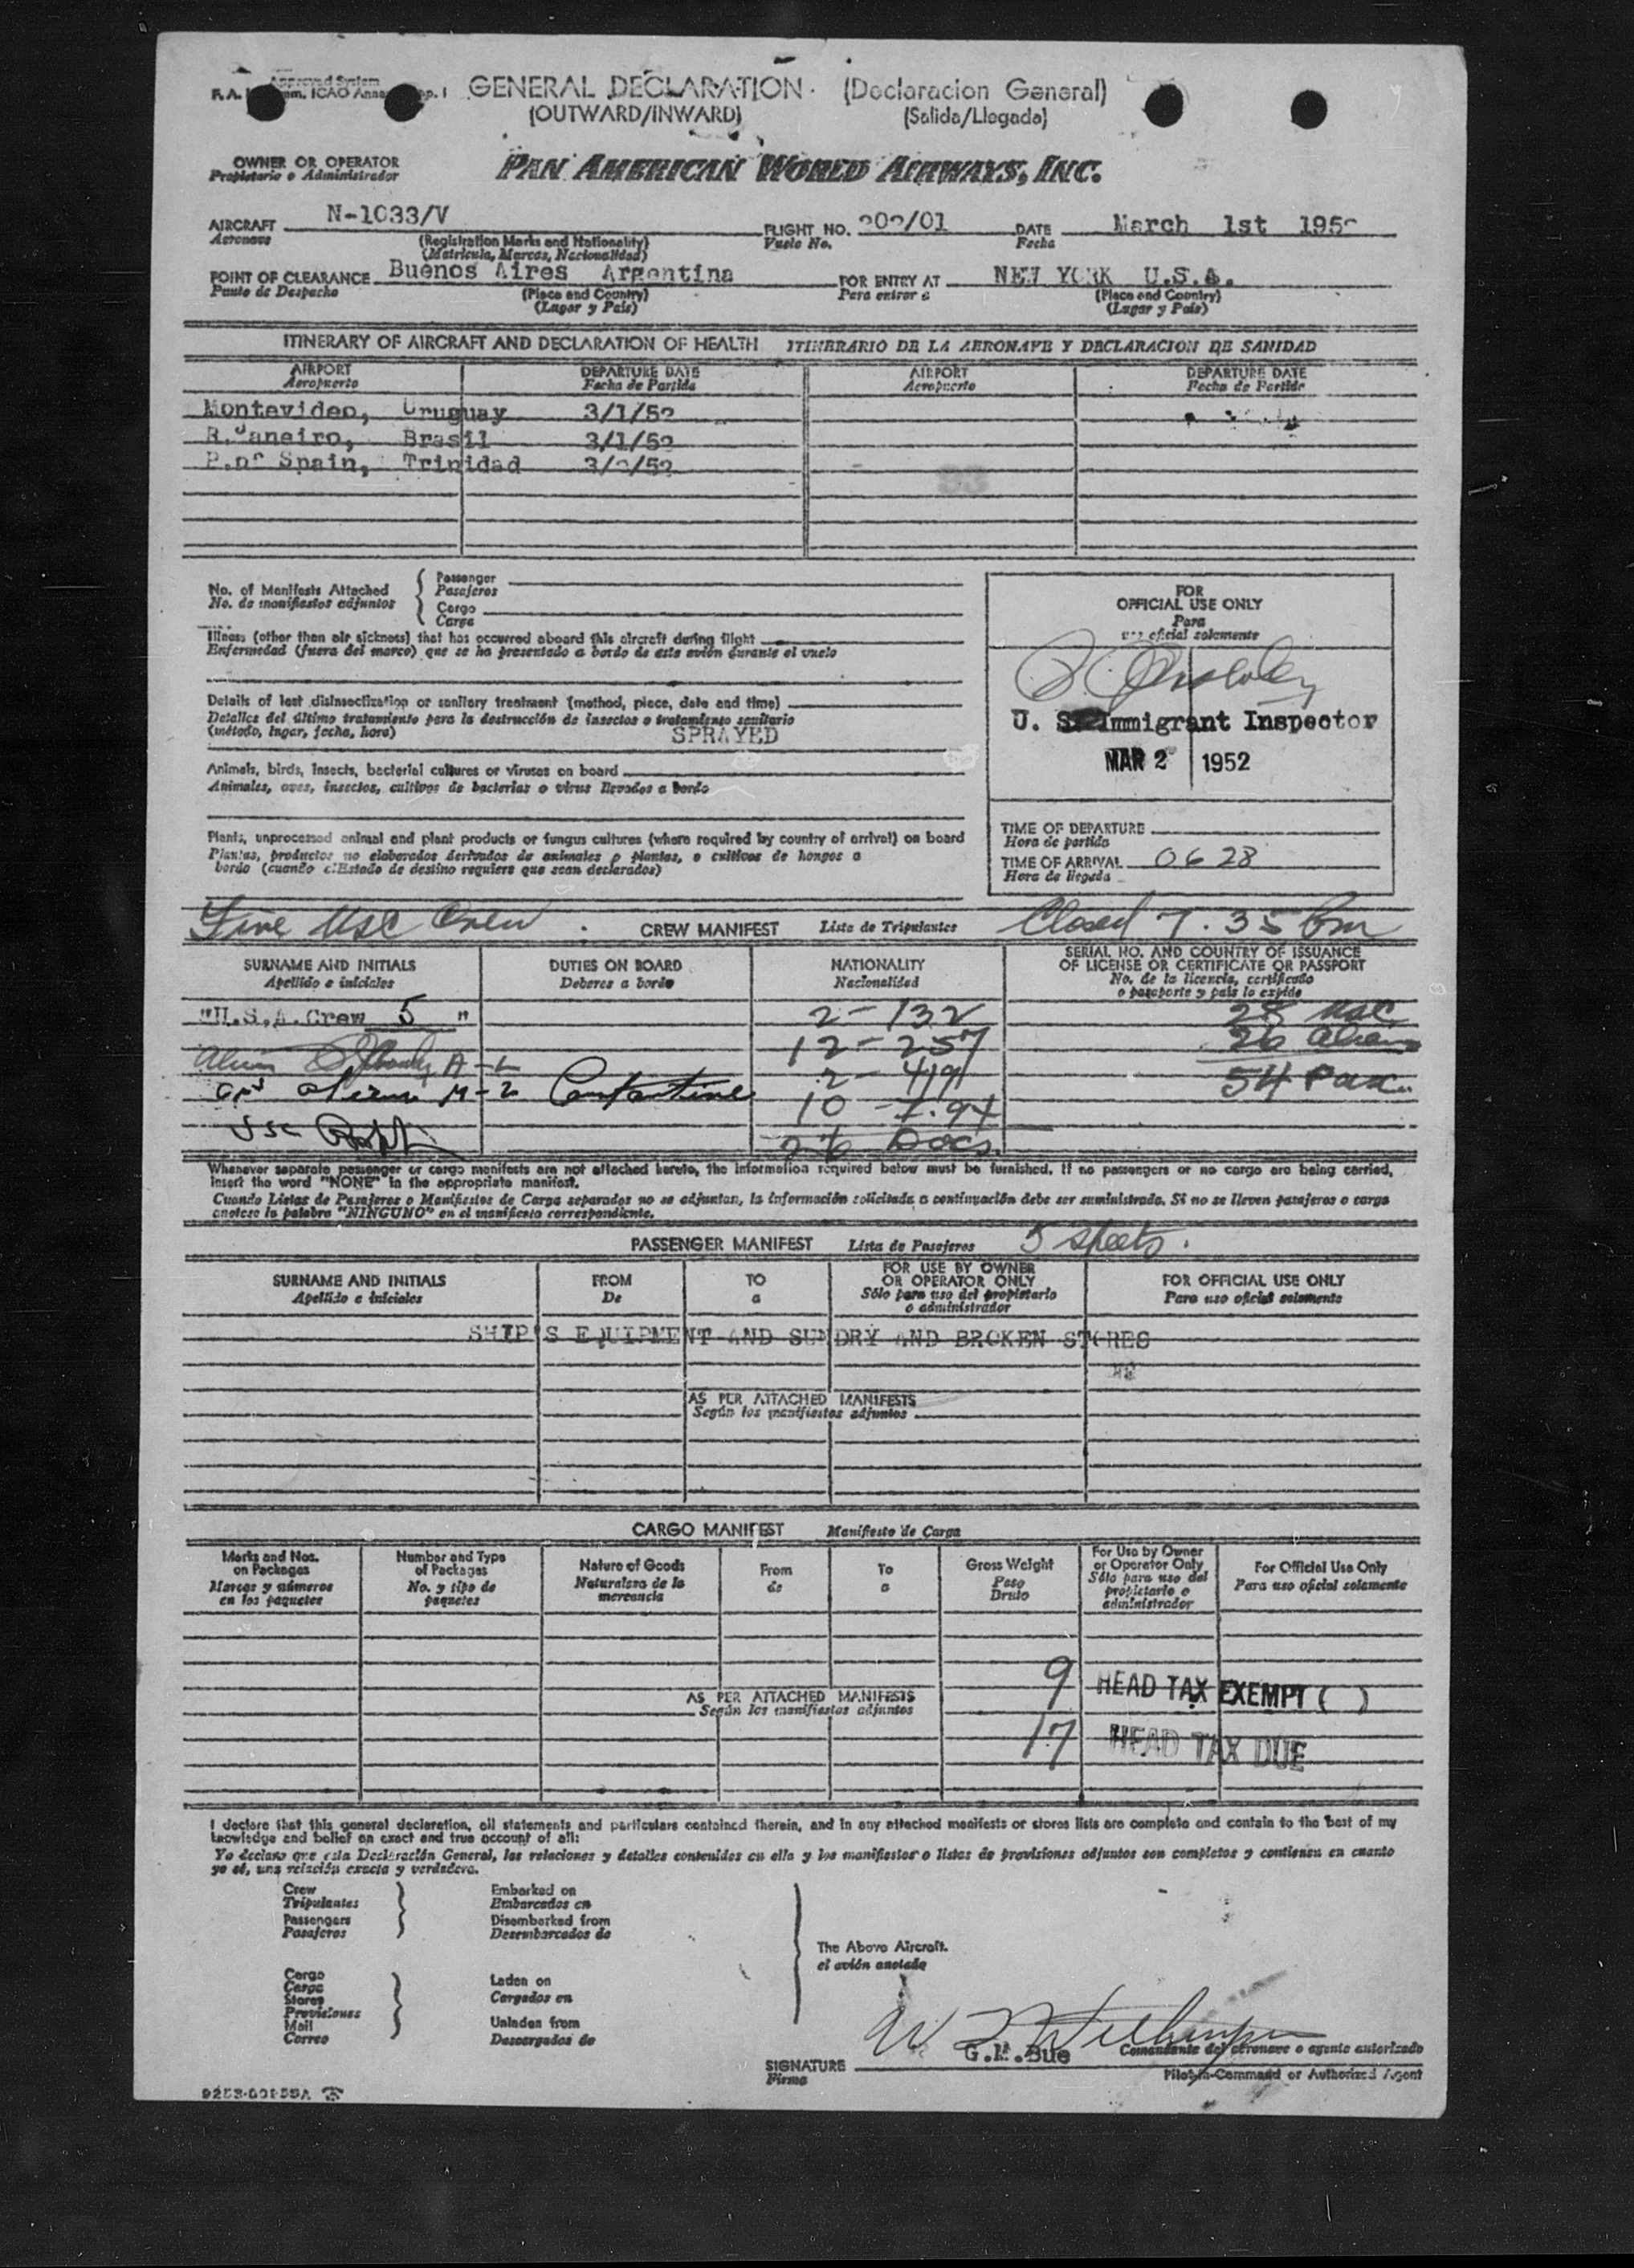 Approved System
GENERAL DECLARATION. (Declaracion General)
(OUTWARD/INWARD) (Salida/Llegada)
OWNER OR OPERATOR
Propietario o Administrador
PAN AMERICAN WORLD AIRWAYS, INC.
AIRCRAFT N-1033/V FLIGHT NO. 202/01 DATE March 1st 1952
Aeronave (Registration Marks and Nationality) Vuelo No. Fecha
(Matricula, Marcas, Nacionalidad)
POINT OF CLEARANCE Buenos Aires Argentina FOR ENTRY AT NEW YORK U.S.A.
Punto de Despacho (Place and Country) Para entrar a (Place and Country)
(Lugar y País) (Lugar y País)
ITINERARY OF AIRCRAFT AND DECLARATION OF HEALTH ITINERARIO DE LA AERONAVE Y DECLARACION DE SANIDAD
AIRPORT DEPARTURE DATE AIRPORT DEPARTURE DATE
Aeropuerto Fecha de Partida Aeropuerto Fecha de Partida
Montevideo, Uruguay 3/1/52
R.Janeiro, Brasil 3/1/52
P.of Spain, Trinidad 3/2/52
No. of Manifests Attached
No. de manifiestos adjuntos
Passenger
Pasajeros
Cargo
Carga
Illness (other than air sickness) that has occurred aboard this aircraft during flight
Enfermedad (fuera del mareo) que se ha presentado a bordo de este avión durante el vuelo
Details of last disinsectization or sanitary treatment (method, place, date and time)
Detalles del último tratamiento para la destrucción de insectos o tratamiento sanitario
(método, lugar, fecha, hora)
SPRAYED
Animals, birds, insects, bacterial cultures or viruses on board
Animales, aves, insectos, cultivos de bacterias o virus llevados a bordo
Plants, unprocessed animal and plant products or fungus cultures (where required by country of arrival) on board
Plantas, productos no elaborados derivados de animales o plantas, o cultivos de hongos a
bordo (cuando el Estado de destino requiere que sean declarados)
FOR
OFFICIAL USE ONLY
Para
uso oficial solamente
U. S. Immigrant Inspector
MAR 2 1952
TIME OF DEPARTURE
Hora de partida
TIME OF ARRIVAL 0628
Hora de llegada
Five USC Crew CREW MANIFEST Lista de Tripulantes Closed 7.35 Pm
SURNAME AND INITIALS DUTIES ON BOARD NATIONALITY SERIAL NO. AND COUNTRY OF ISSUANCE
OF LICENSE OR CERTIFICATE OR PASSPORT
Apellido e iniciales Deberes a bordo Nacionalidad No. de la licencia, certificado
o pasaporte y país lo expide
"U.S.A.Crew 5 " 2-132 28 USC
12-257 26 Aliens
A-L 2-419 54 Pax.
M-2 Constantine 10-7.94
USC 26 Docs.
Whenever separate passenger or cargo manifests are not attached hereto, the information required below must be furnished. If no passengers or no cargo are being carried,
insert the word "NONE" in the appropriate manifest.
Cuando Listas de Pasajeros o Manifiestos de Carga separados no se adjuntan, la información solicitada a continuación debe ser suministrada. Si no se lleven pasajeros o carga
anotese la palabra "NINGUNO" en el manifiesto correspondiente.
PASSENGER MANIFEST Lista de Pasajeros 5 sheets.
SURNAME AND INITIALS FROM TO FOR USE BY OWNER
OR OPERATOR ONLY FOR OFFICIAL USE ONLY
Apellido e iniciales De a Sólo para uso del propietario
o administrador Para uso oficial solamente
SHIP'S EQUIPMENT AND SUNDRY AND BROKEN STORES
AS PER ATTACHED MANIFESTS
Según los manifiestos adjuntos
CARGO MANIFEST Manifiesto de Carga
Marks and Nos.
on Packages
Marcas y números
en los paquetes
Number and Type
of Packages
No. y tipo de
paquetes
Nature of Goods
Naturalesa de la
mercancia
From
de
To
a
Gross Weight
Peso
Bruto
For Use by Owner
or Operator Only
Sólo para uso del
propietario o
administrador
For Official Use Only
Para uso oficial solamente
9 HEAD TAX EXEMPT ( )
AS PER ATTACHED MANIFESTS
Según los manifiestos adjuntos
17 HEAD TAX DUE
I declare that this general declaration, all statements and particulars contained therein, and in any attached manifests or stores lists are complete and contain to the best of my
knowledge and belief an exact and true account of all:
Yo declaro que esta Declaración General, las relaciones y detalles contenidos en ella y los manifiestos o listas de provisiones adjuntos son completos y contienen en cuanto
yo sé, una relación exacta y verdadera.
Crew
Tripulantes
Passengers
Pasajeros
Embarked on
Embarcados en
Disembarked from
Desembarcados de
The Above Aircraft.
el avión anotado
Cargo
Carga
Stores
Provisiones
Mail
Correo
Laden on
Cargados en
Unladen from
Descargados de
G.M.Bue Comandante del aeronave o agente autorizado
SIGNATURE
Firma
Pilot-in-Command or Authorized Agent